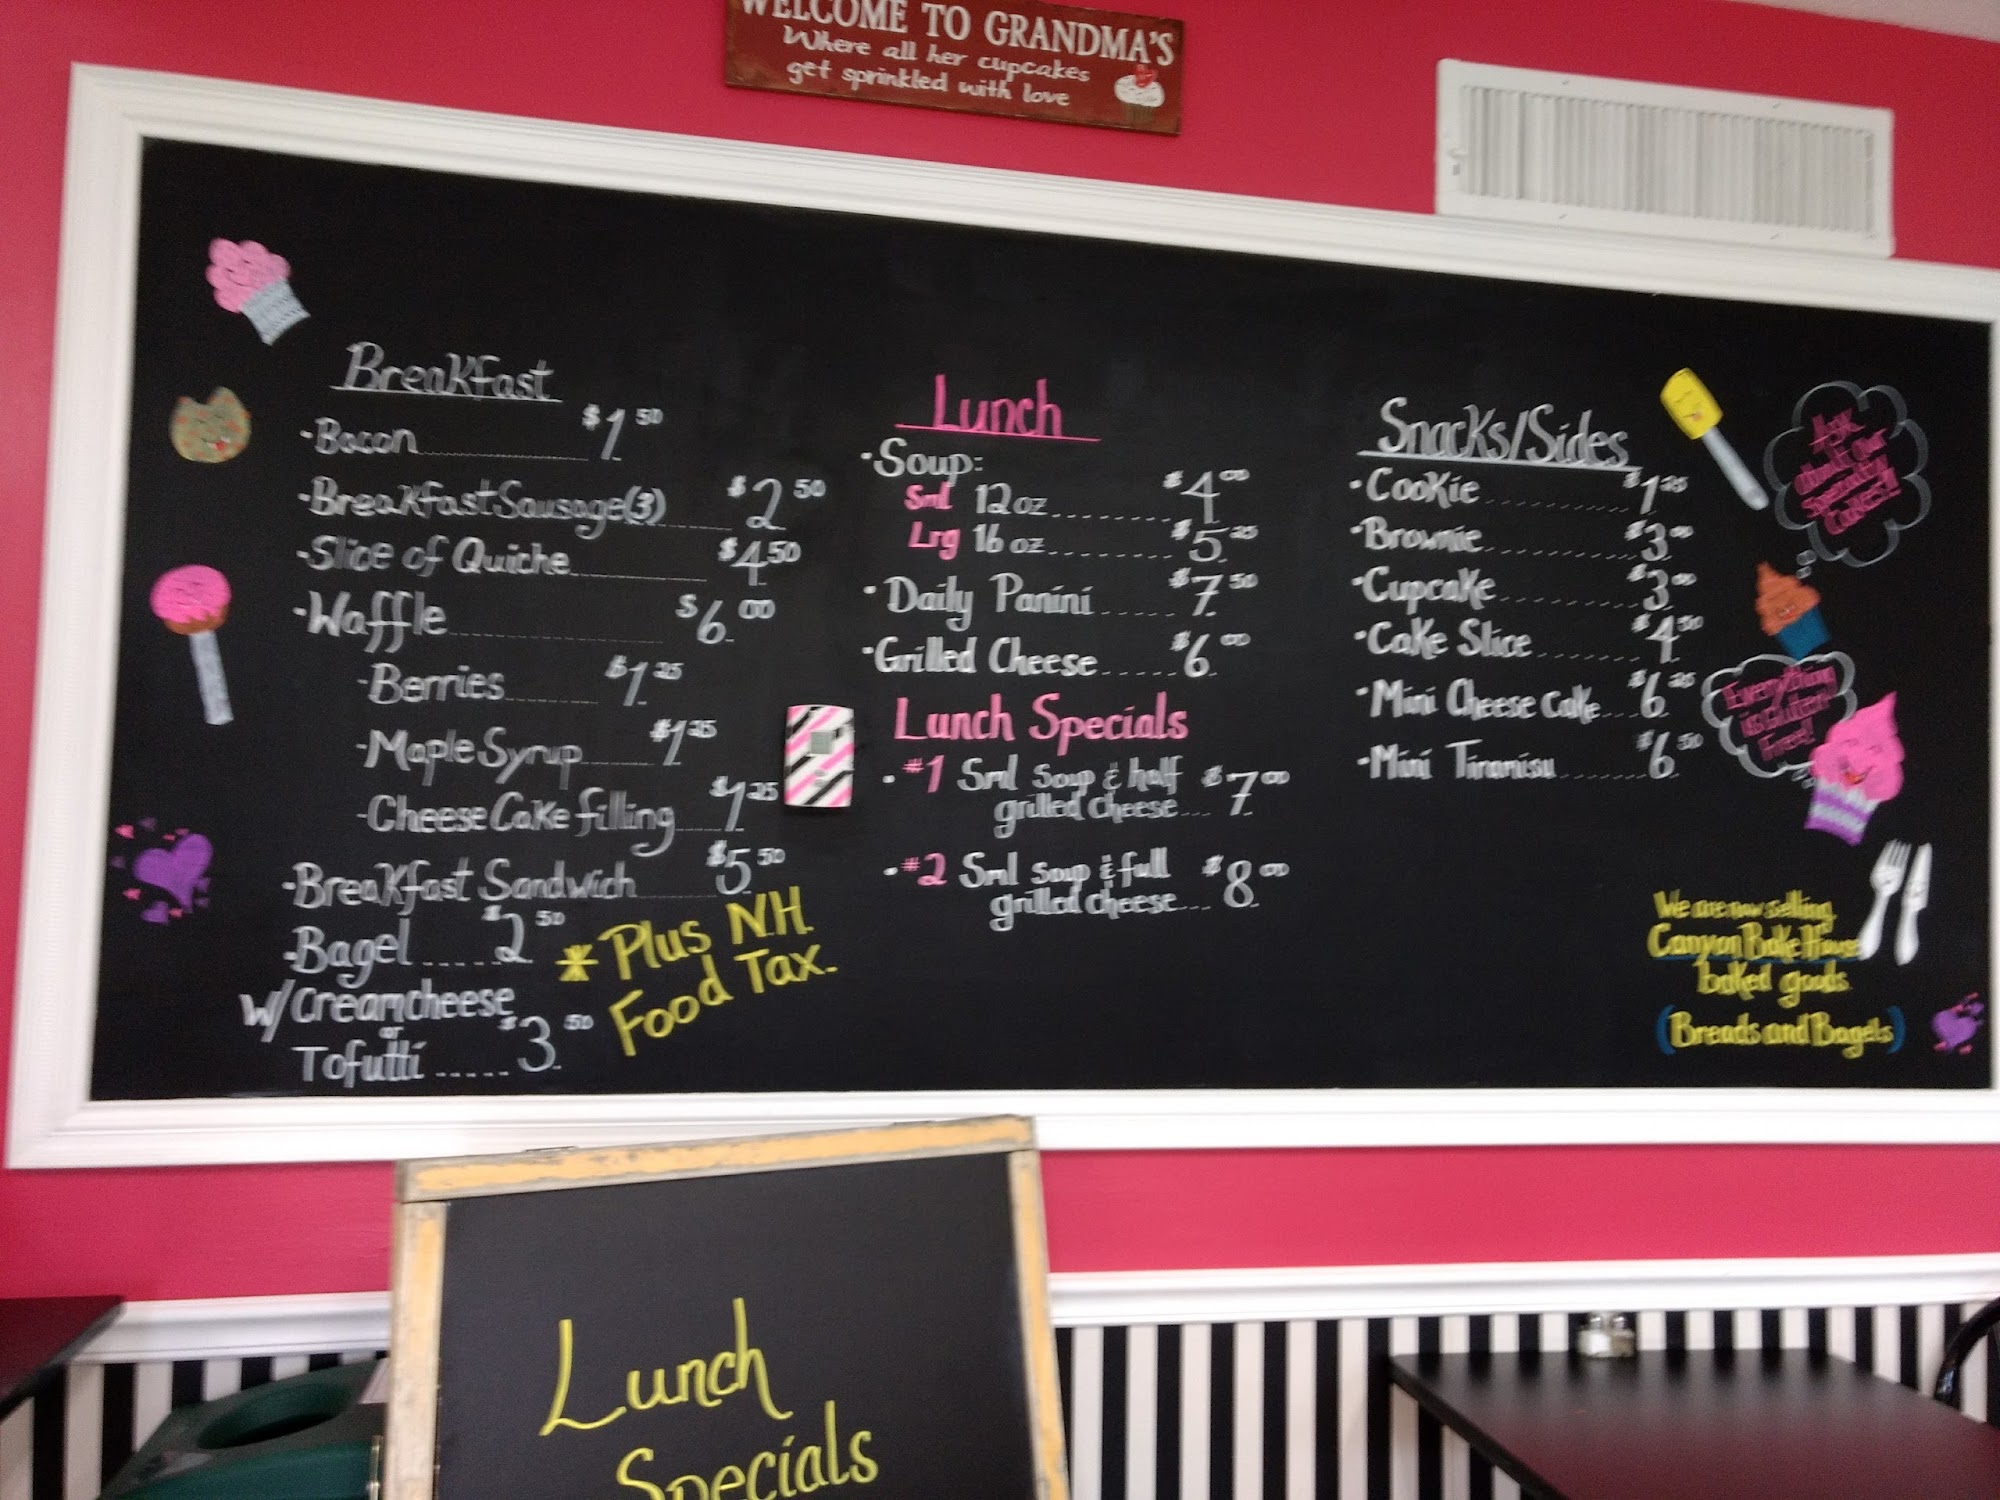 WELCOME TO GRANDMA'S
Where all her cupcakes
get sprinkled with love
Breakfast
·Bacon $1.50
·Breakfast Sausage(3) $2.50
·Slice of Quiche $4.50
·Waffle $6.00
-Berries $1.25
-Maple Syrup $1.25
-Cheese Cake filling $1.25
·Breakfast Sandwich $5.50
·Bagel $2.50
W/Creamcheese
or
Tofutti $3.50
* Plus N.H.
Food Tax.
Lunch
·Soup:
Sml 12oz $4.00
Lrg 16oz $5.25
·Daily Panini $7.50
·Grilled Cheese $6.00
Lunch Specials
·#1 Sml soup & half
grilled cheese $7.00
·#2 Sml soup & full
grilled cheese $8.00
Snacks/Sides
·Cookie $1.25
·Brownie $3.00
·Cupcake $3.00
·Cake Slice $4.50
·Mini Cheese Cake $6.25
·Mini Tiramisu $6.50
Ask
about our
Specialty
Cakes!!
Everything
is Gluten
Free!!
We are now selling
Canyon Bake House
baked goods
(Breads and Bagels)
Lunch
Specials